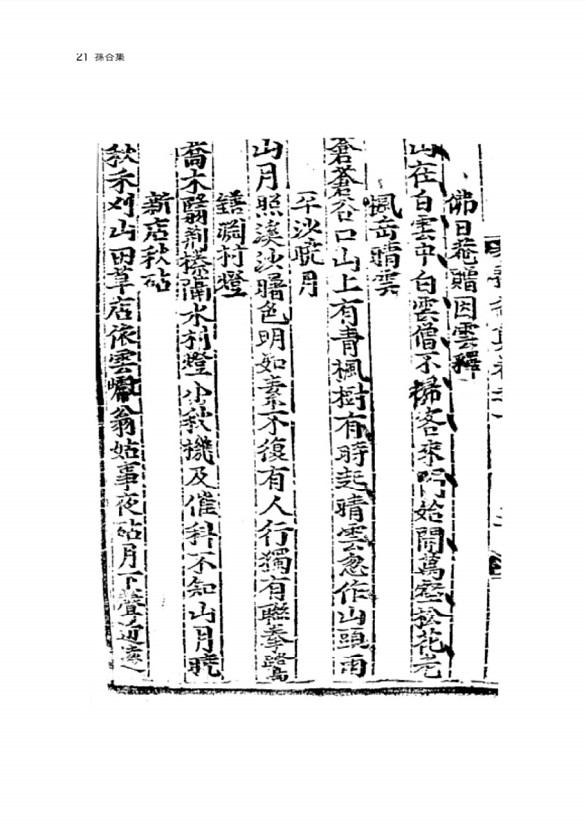 21 孫谷集
佛日菴贈因雲釋
山在白雲中白雲僧不掃客來門始開萬壑松花老
楓岳晴雲
蒼蒼谷口山上有青楓樹有時起晴雲忽作山頭雨
平沙晓月
山月照溪沙曙色明如素不復有人行獨有聯拳鷺
村燈
喬木翳荊榛隔水村燈小秋機及催科不知山月曉
新店秋砧
秋禾刈山田草店依雲嶠翁姑事夜砧月下聲近遠